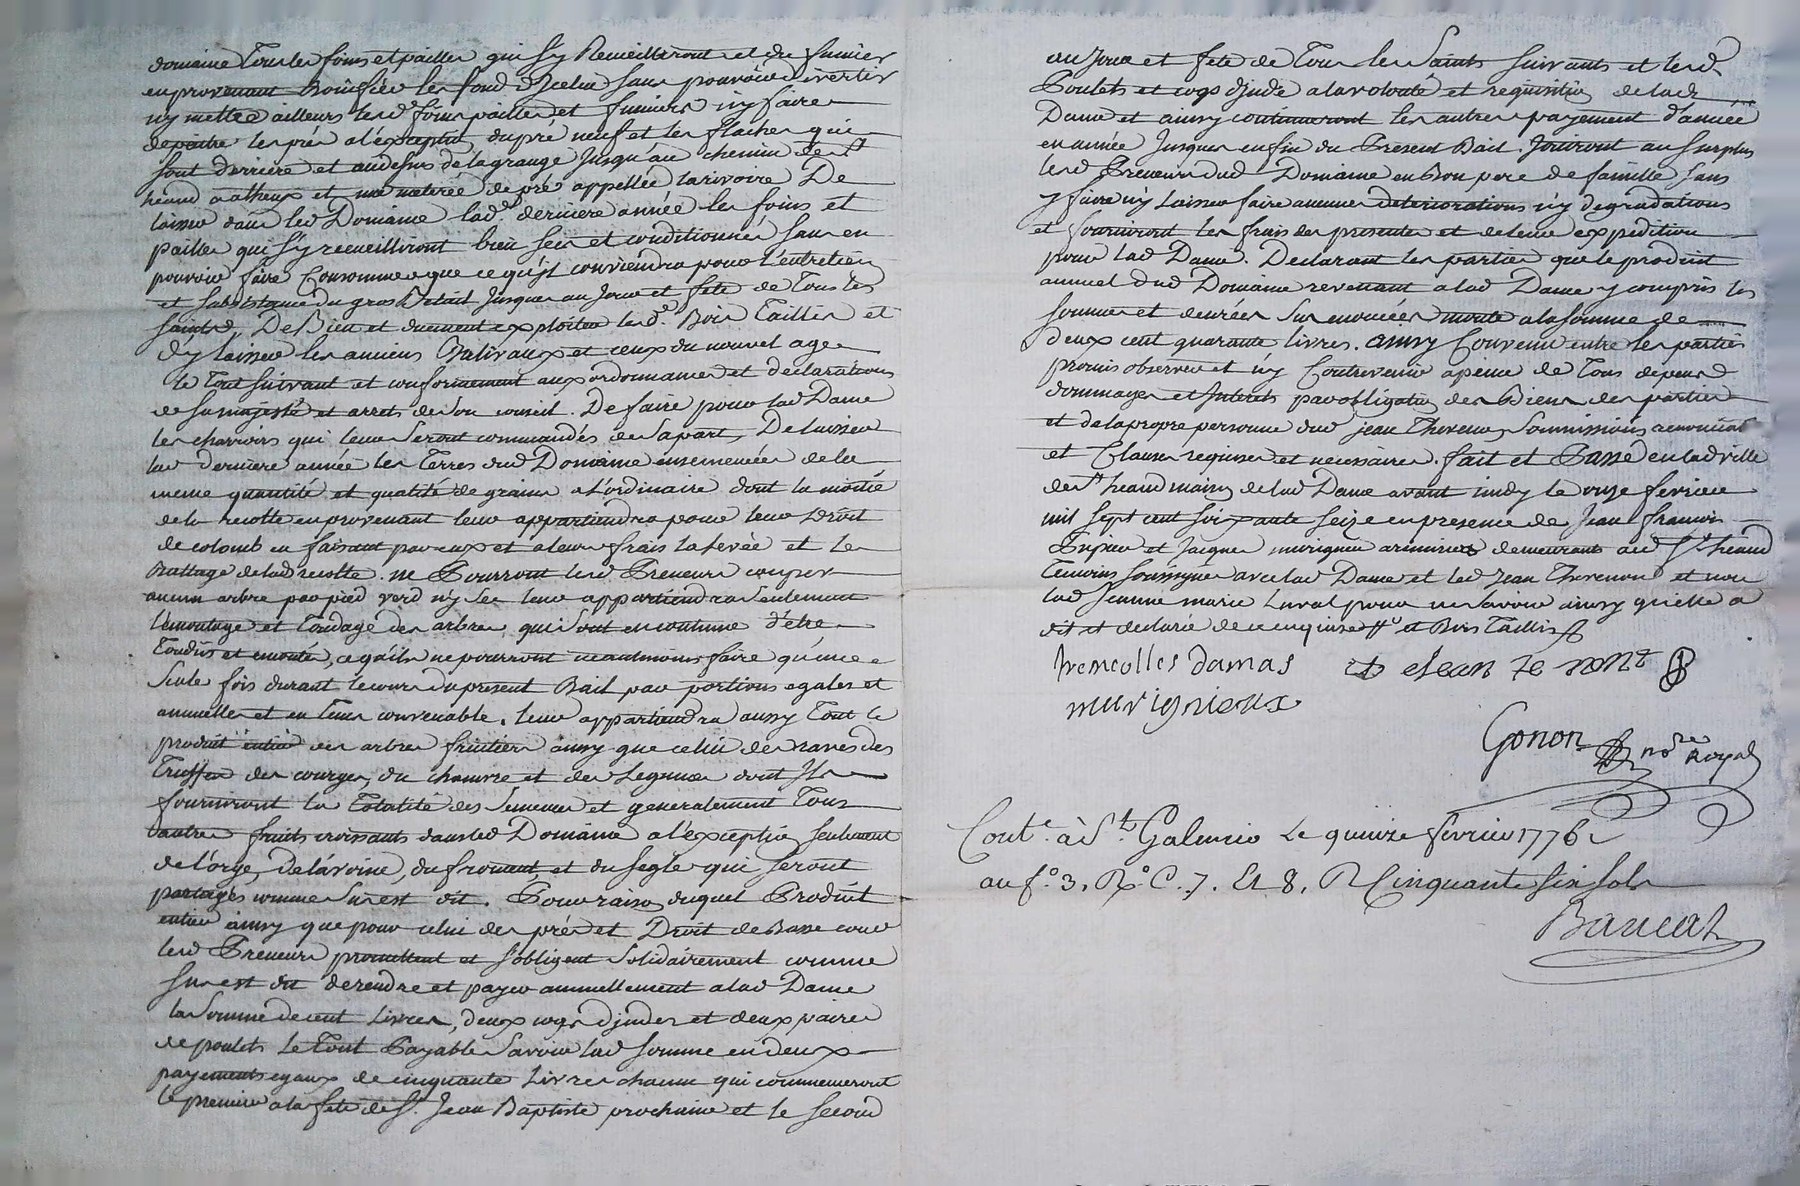 domaine Tous les foins et pailles qui s'y Recueilliront et du fumier
en provenant Bonifier les fond d'Icelui sans pouvoir divertir
ny mettre ailleurs lesd. foins pailles et fumiers n'y faire
depaitre les prés a l'exception du pré neuf et les flaches qui
sont derriere et audessus de la grange Jusqu'au chemin de St
heand a et une materée de pré appellée larivoire De
laisser dans led Domaine lad. derniere année les foins et
pailles qui s'y recueilliront bien secs et conditionnés sans en
pouvoir faire Consommer que ce qu'jl conviendra pour l'entretien
et subsistance du gros Betail Jusques au Jour et fete de Tous les
saints, De Bien et duement exploiter lesd. Bois Taillis et
d'y laisser les anciens Balivaux et ceux du nouvel age
le Tout suivant et conformement aux ordonnances et declarations
de sa majesté et arrets de son conseil. De faire pour lad Dame
les charrois qui leur seront commandés de sa part, De laisser
lad derniere année les Terres dud Domaine ensemencées de la
meme quantité et qualité de grains a l'ordinaire dont la moitié
de la recolte en provenant leur appartiendra pour leur Droit
de colomb en faisant par eux et a leurs frais la levée et le
Battage de lad recolte. ne Pourront lesd Preneurs couper
aucun arbre par pied verd n'y sec leur appartiendra seulement
l'emontage et Tondage des arbres qui sont en coutume d'etre
Tondus et emontés, ce qu'ils ne pourront neantmoins faire qu'une
seule fois durant le cours du present Bail par portions egales et
annuelles et en Tems convenable. leur appartiendra aussy Tout le
produit entier des arbres fruitiers aussy que celui des raves des
Truffes des courges, du chanvre et des Legumes dont Jls
fourniront la Totalité des semences et generalement Tous
autres fruits croissants dans led Domaine a l'exception seulement
de l'orge, De l'avoine, du froment, et du segle qui seront
partagés comme sus est dit. Pour raison duquel Produit
entier ainsy que pour celui des prés et Droit de Basse cour
lesd Preneurs promettent et s'obligent solidairement comme
sus est dit de rendre et payer annuellement a lad Dame
la somme de cent Livres, deux coqs d'jndes et deux paires
de poulets le Tout Payable savoir lad somme en deux
payements egaux de cinquante Livres chacun qui commenceront
le premier a la fete de St. Jean Baptiste prochaine et le second
au Jour et fete de Tous les Saints suivants et lesd.
Poulets et coqs d'jnde a la volonté et requisition de lad
Dame et ainsy continueront les autres payement d'année
en année Jusques en fin du Present Bail. Jouiront au surplus
lesd Preneurs dud Domaine en Bon pere de famille sans
y faire n'y laisser faire aucunes deteriorations n'y degradations
et fourniront les frais des presentes et de leur expedition
pour lad Dame. Declarant les parties que le produit
annuel dud Domaine revenant a lad Dame y compris les
sommes et denrées sus enoncées monte a la somme de
deux cent quarante livres. ainsy Convenu entre les parties
promis observer et n'y Contrevenir a peine de Tous depens
dommages et Interets par obligation des Biens des parties
et de la propre personne dud jean Thevenon soumissions renonciat
et Clauses requises et necessaires. fait et Passé en lad ville
de St heand maison de lad Dame avant midy le onze fevrier
mil sept cent soixante seize en presence de Jean francois
et Jaques murigneu armuriers demeurants aud St héand
Temoins soussignés avec lad Dame et led Jean Thevenon et non
lad Jeanne marie Laval pour ne savoir ainsy qu'elle a
dit et declaré de ce enquise et Bois Taillis
damas Jean Te nont
murignieux
Gonon nore Royal
Cont.e à St. Galmier Le quinze février 1776
au f.o 3. R.o C. 7. Et 8. R Cinquante six sols